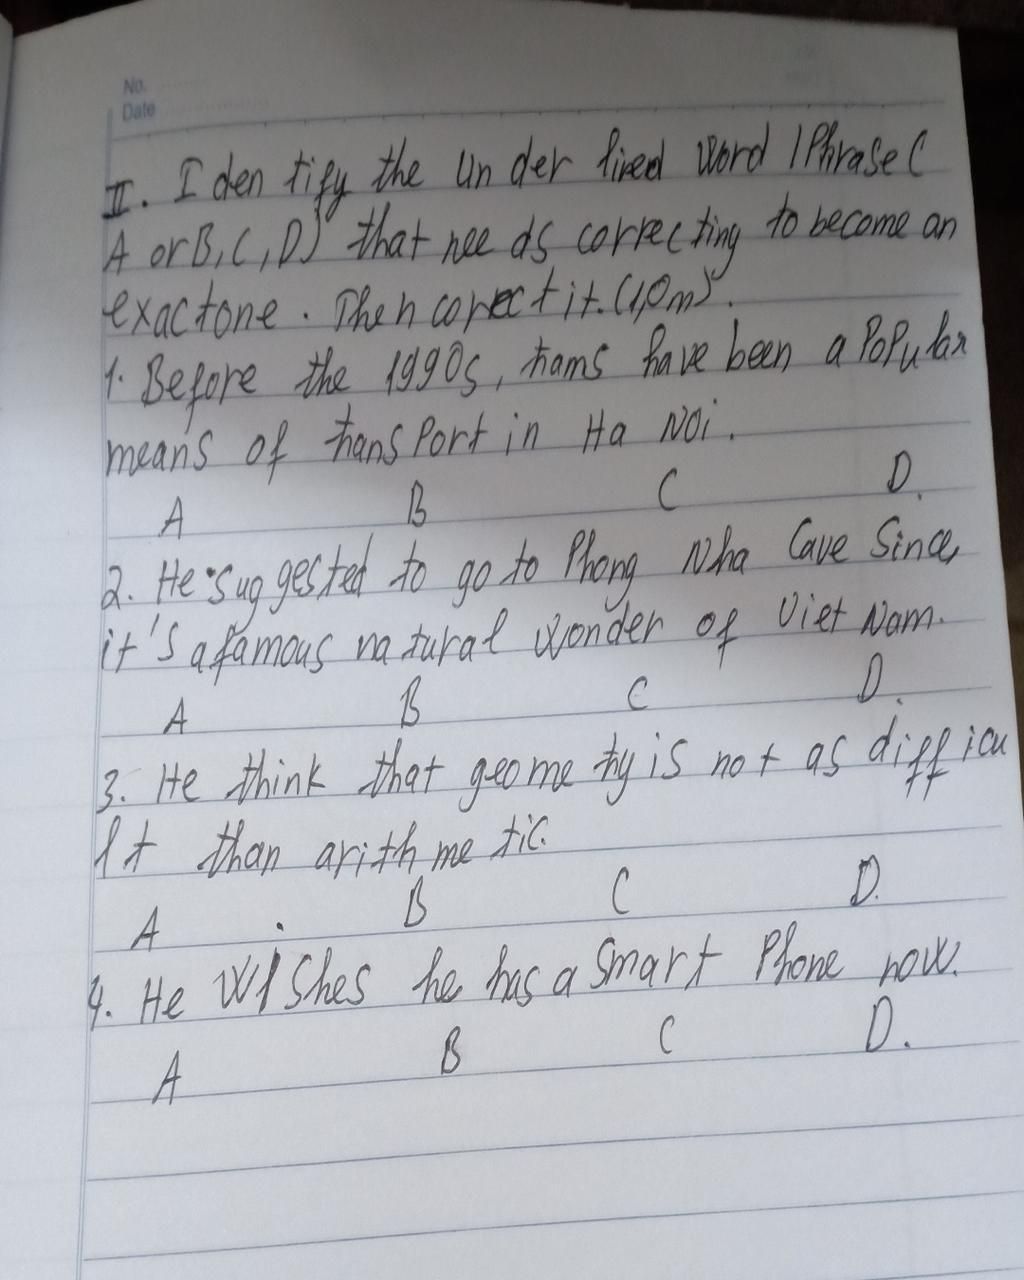 No.
Date
II. Iden tify the un der lined word / Phrase (
A or B, C, D) that nee ds correcting to become an
exactone. Then corect it. (1,0m).
1. Before the 1990s, trams have been a PoPular
means of transPort in Ha Noi.
A B C D.
2. He suggested to go to Phong Nha Cave Since,
it's a famous natural wonder of Viet Nam.
A B C D.
3. He think that geome try is not as difficu
lt than arithme tic.
A B C D.
4. He wishes he has a smart Phone now.
A B C D.